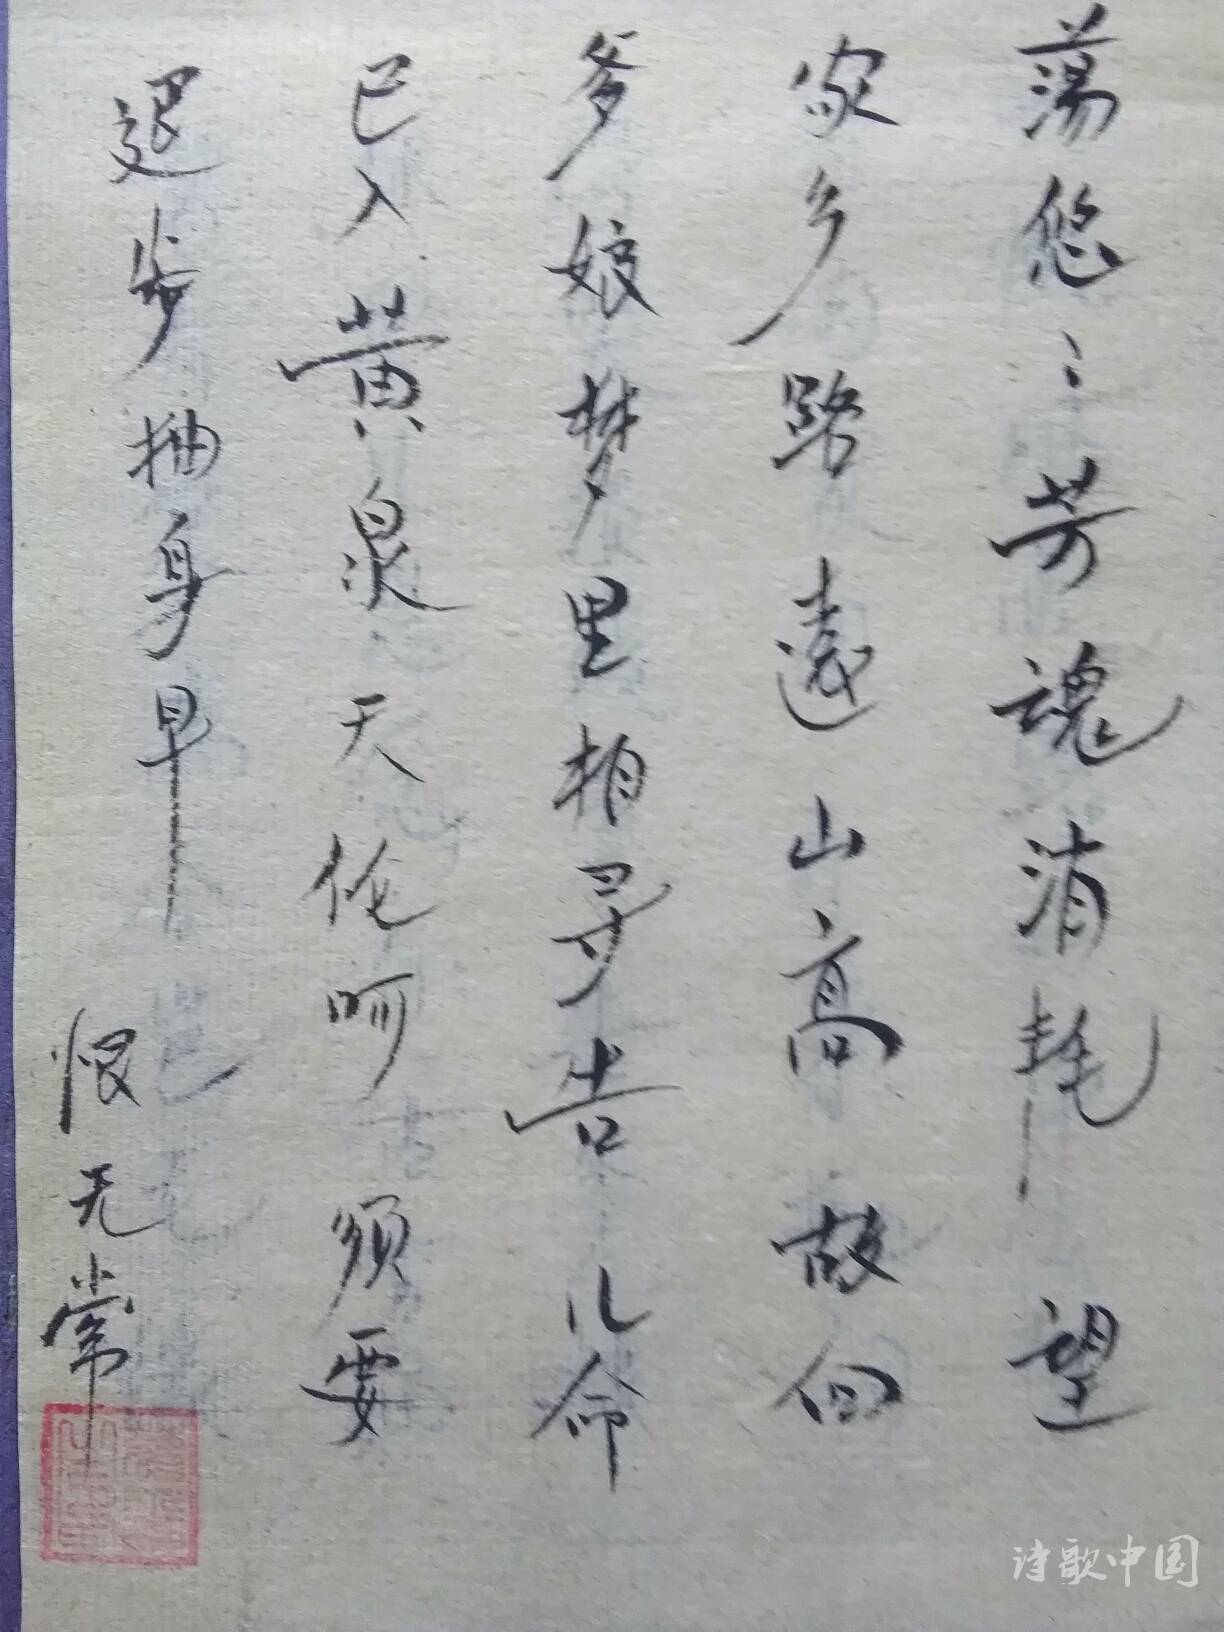 荡悠〻芳魂消耗望
家乡路遠山高故向
爹娘梦里相寻告儿命
已入黄泉天伦呵须要
退步抽身早
恨无常
诗歌中国